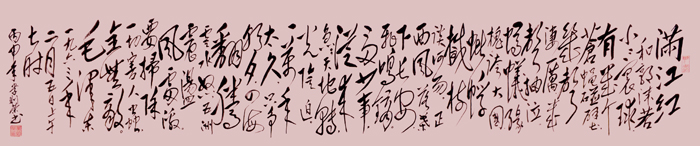 满江红
和郭沫若
小小寰球
有几个
苍蝇碰壁
几声
凄厉几声
抽泣
蚂蚁缘
槐夸大国
蚍蜉
撼树
谈何易正
西风落叶
下长安
飞鸣镝
多少事
从来急
天地转
光阴迫
一万年
太久只争
朝夕四海
翻腾
云水怒五洲
震荡
风雷激
要扫除
一切害人虫
全无敌
毛泽东
一九六三年
二月五日上午
七时